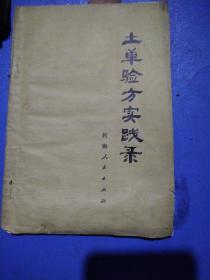 土单验方实践录
河南人民出版社